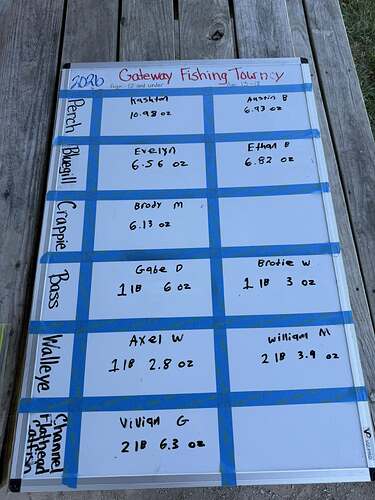 2026 Gateway Fishing Tourney
Age 12 and under
Perch
Kashton
10.98 oz
Austin B
6.93 oz
Bluegill
Evelyn
6.56 oz
Ethan B
6.82 oz
Crappie
Brody M
6.13 oz
Bass
Gabe D
1 lB 6 oz
Brodie W
1 lB 3 oz
Walleye
Axel W
1 lB 2.8 oz
William M
2 lB 3.9 oz
Channel
Flathead
Catfish
Vivian G
2 lB 6.3 oz